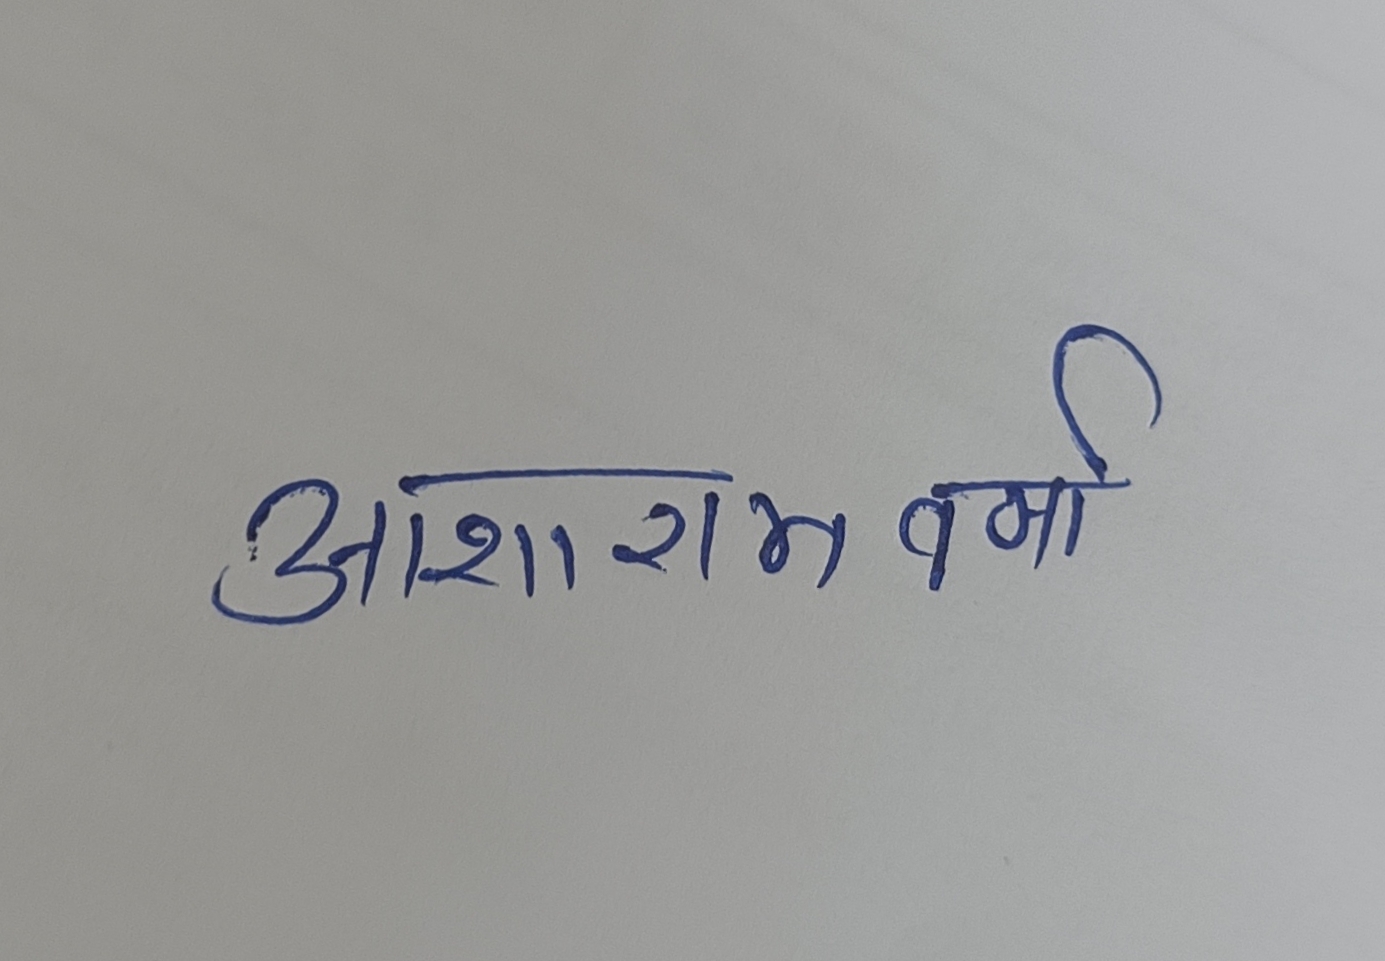 आशाराम वर्मा